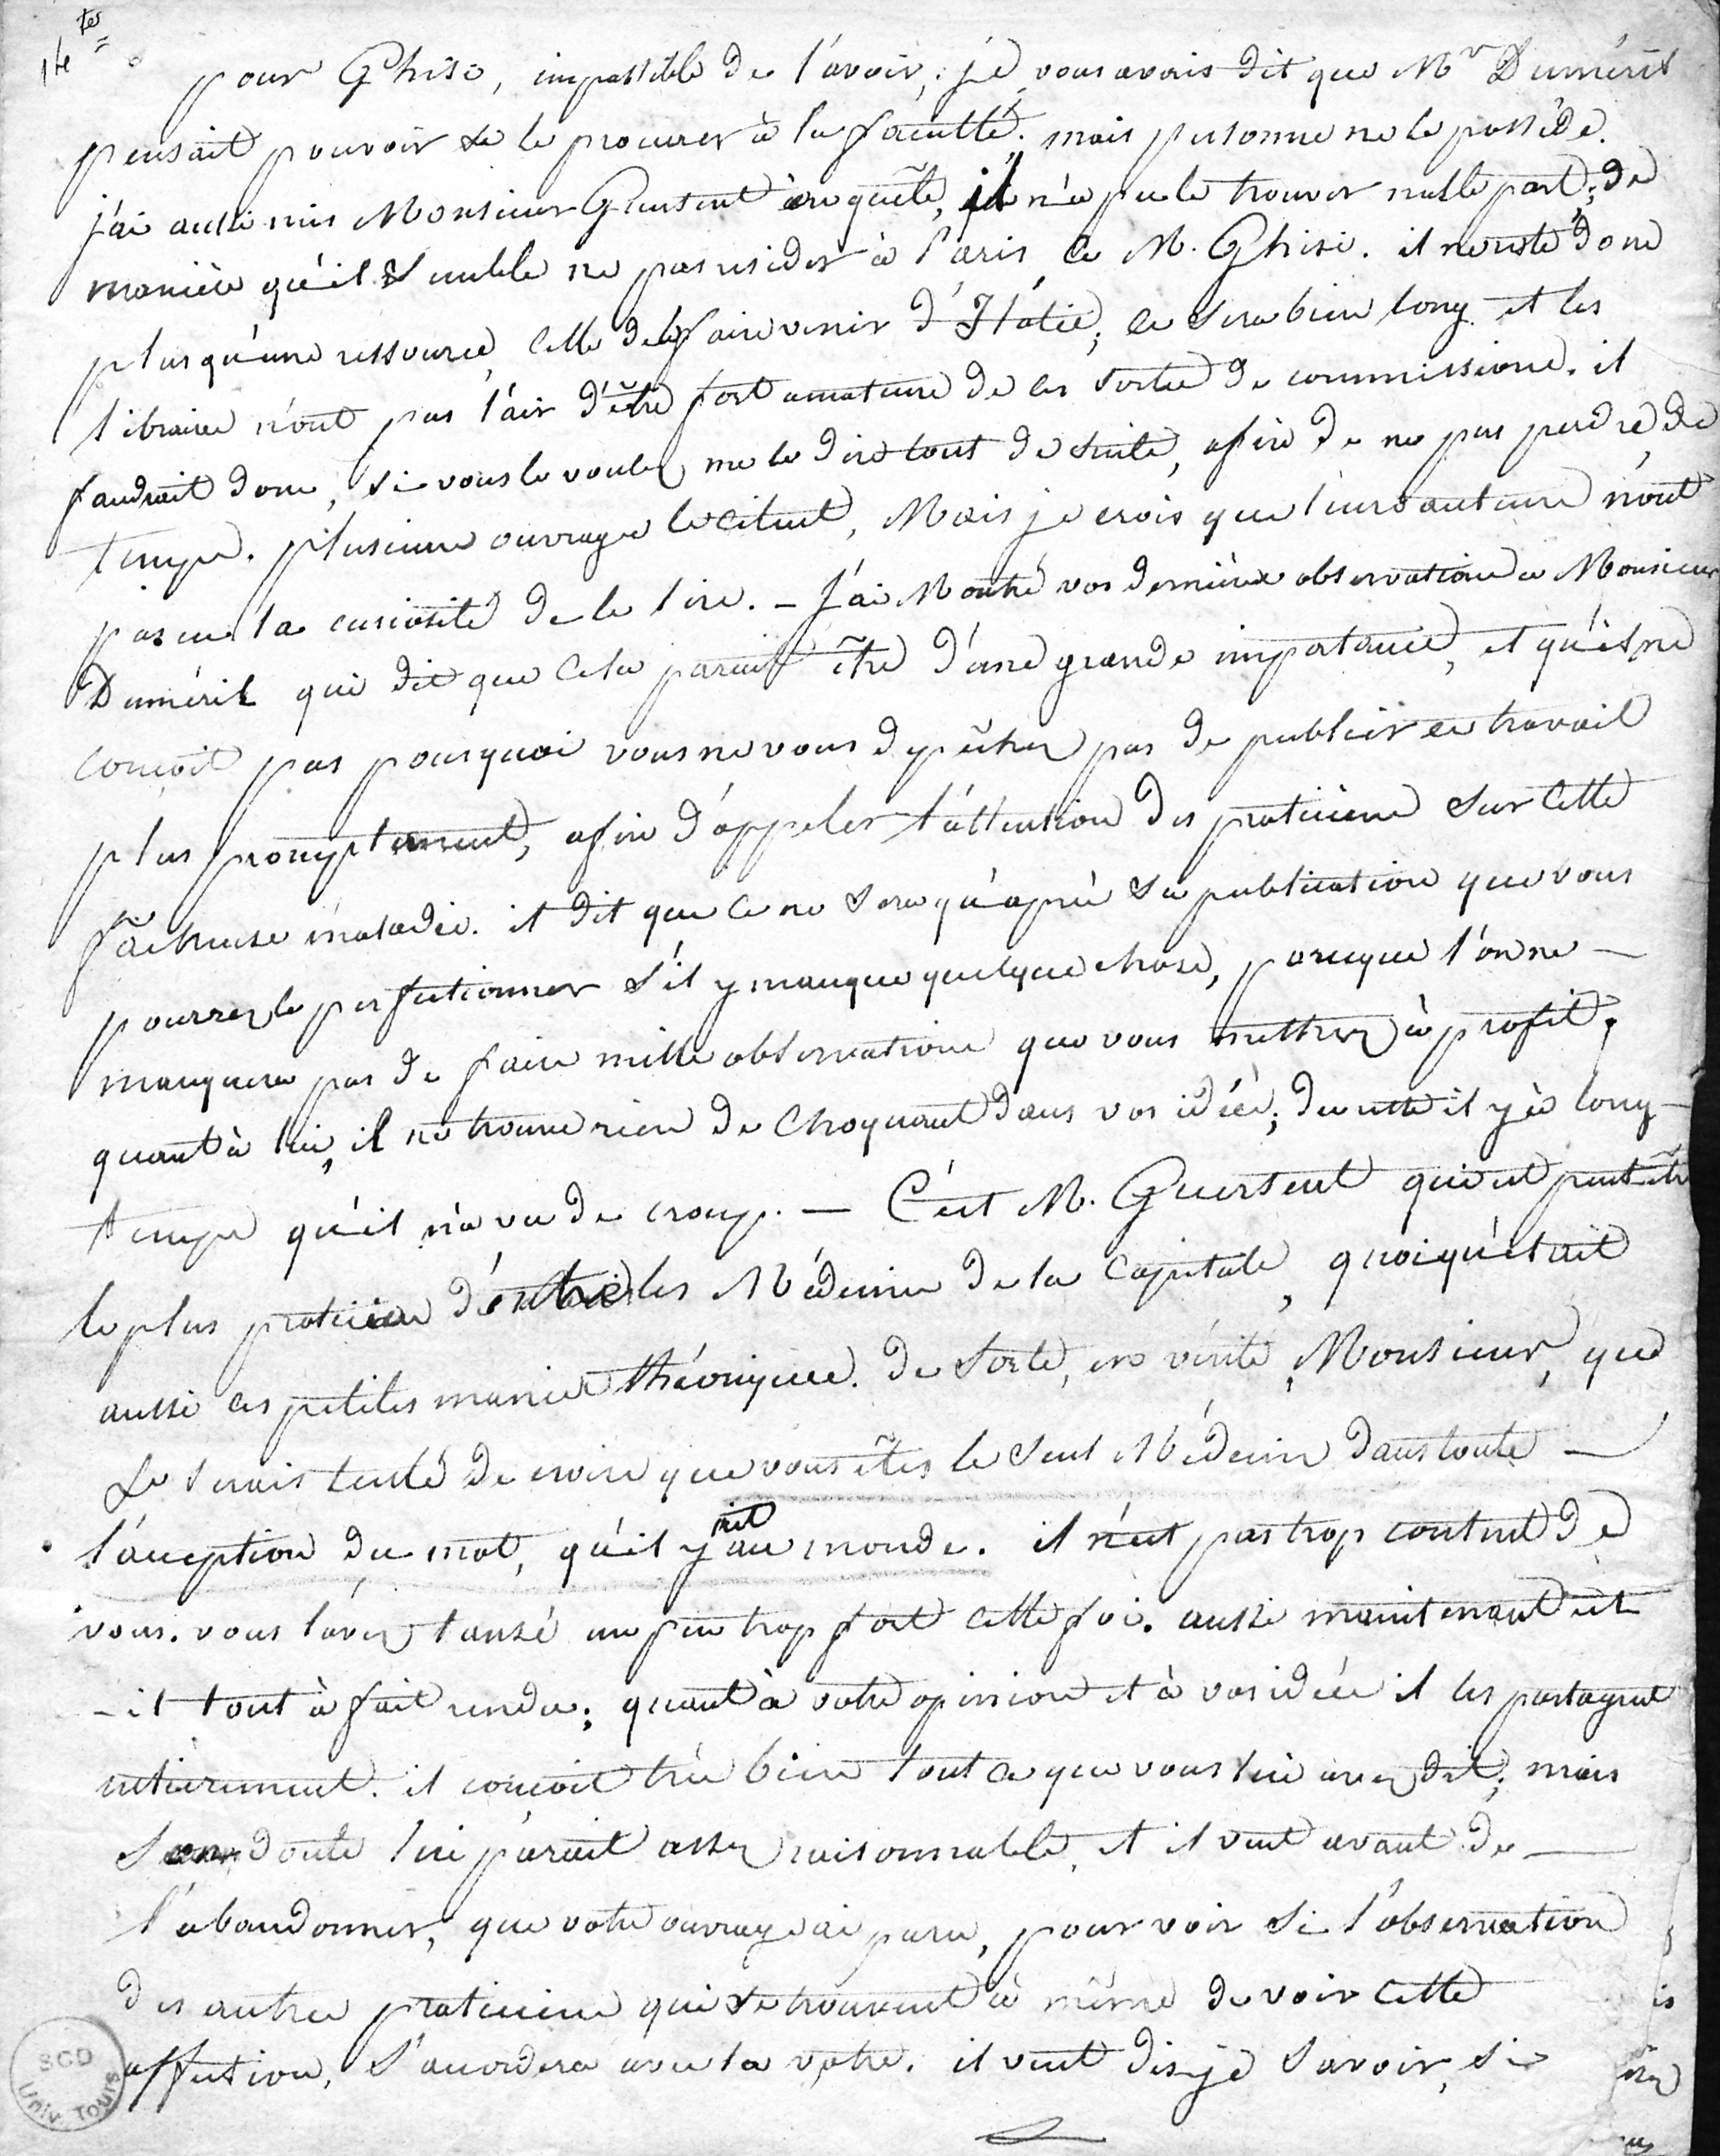 14 ter
pour Ghisi, impossible de l'avoir; je vous avais dit que Mr Duméril
pensait pouvoir se le procurer à la faculté; mais personne ne le possède.
j'ai aussi mis Monsieur Guersent en quête, il n'a pu le trouver nulle part; de
manière qu'il semble ne pas resider à Paris, ce M. Ghisi. il ne reste donc
plus qu'une ressource, celle de le faire venir d'Italie; ce sera bien long et les
libraires n'ont pas l'air d'être fort amateurs de ces sortes de commissions. il
faudrait donc, si vous le voulez me le dire tout de suite, afin de ne pas perdre de
temps. plusieurs ouvrages le citent, Mais je crois que leurs auteurs n'ont
pas eu la curiosité de le lire. – J'ai Montré vos dernières observations à Monsieur
Duméril qui dit que cela parait être d'une grande importance, et qu'il ne
conçoit pas pourquoi vous ne vous dépêchez pas de publier ce travail
plus promptement, afin d'appeler l'attention des praticiens sur cette
fâcheuse maladie. il dit que ce ne sera qu'après sa publication que vous
pourrez le perfectionner s'il y manque quelque chose, parceque l'on ne –
manquera pas de faire mille observations que vous mettrez à profit.
quant à lui, il ne trouve rien de choquant dans vos idées; du reste il y à long-
temps qu'il n'a vu de croup. – C'est M. Guersent qui est peut-être
le plus praticien d'entre les Médecins de la Capitale, quoiqu'ètait
aussi ces petites manies théoriques. de sorte, en vérité, Monsieur, que
Je serais tenté de croire que vous êtes le seul Médecin dans toute –
l'acception du mot, qu'il y ait au monde. il n'est pas trop content de
vous. vous l'avez tansé un peu trop fort cette fois. aussi maintenant est
-il tout à fait rendu; quant à votre opinion et à vos idées il les partagent
entièrement. il conçoit très bien tout ce que vous lui avez dit; mais
son doute lui parait assez raisonnable, et il veut avant de –
l'abandonner, que votre ouvrage ai paru, pour voir si l'observation
des autres praticiens qui se trouvent à même de voir cette
affection, s'accordera avec la votre. il veut dis-je savoir, si
SCD
Univ. Tours